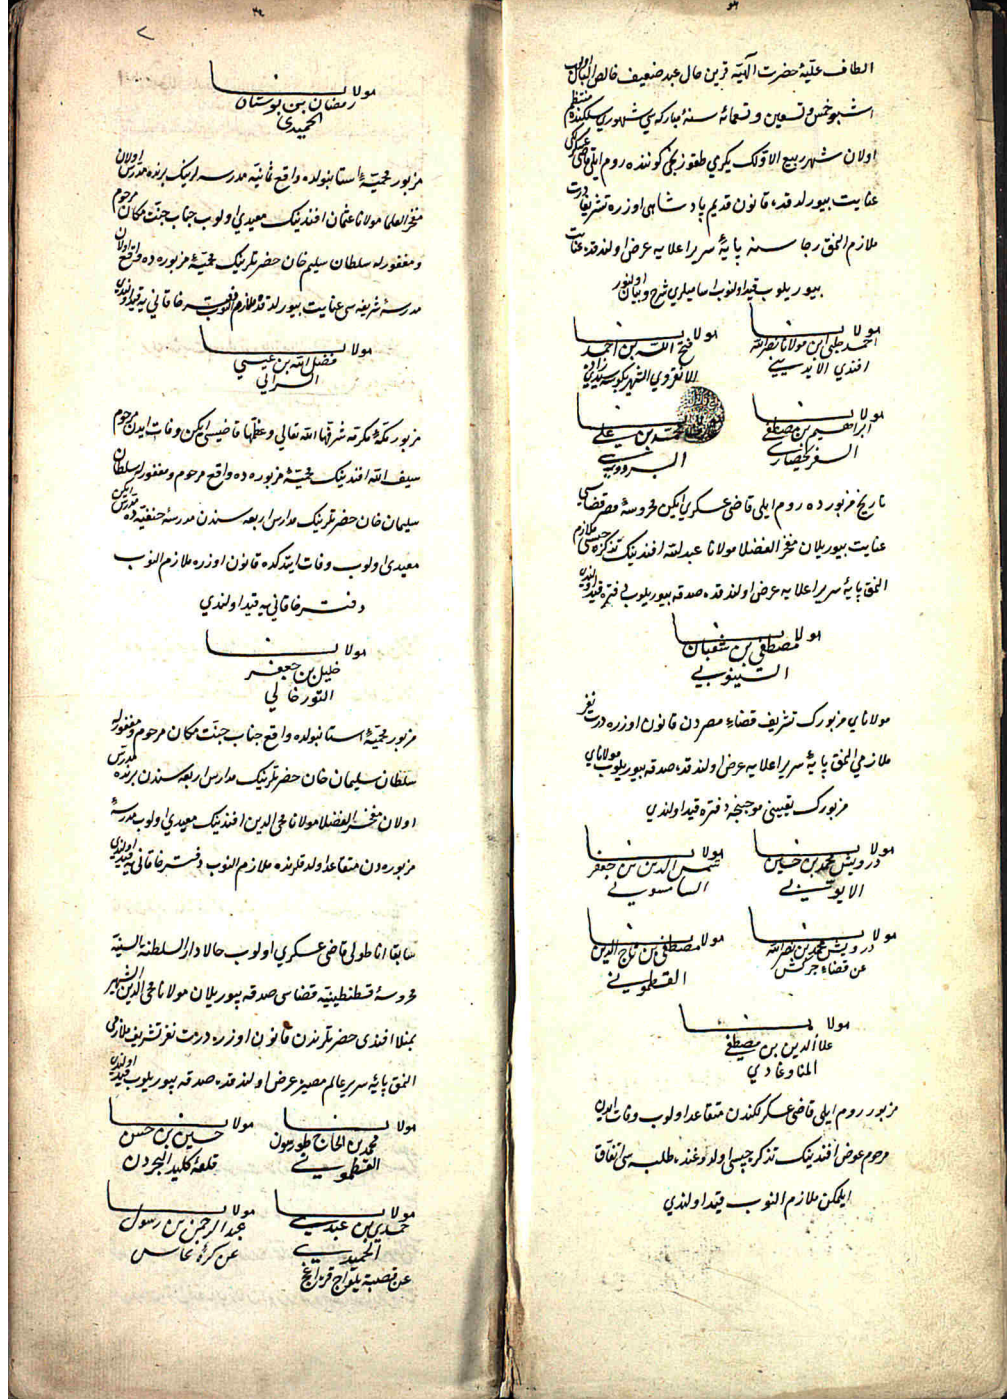 الطاف عليۀ حضرت الٓهيه قرين حال عبد ضعيف خالص البال اولوب
اشبو خمس و تسعين و تسعمائه سنۀ مباركه سى شهورى سلكنده منتظم
اولان شهر ربيع الاولك يكرمي طقوزنجى كوننده روم ايلى قاضى عسكرلكى
عنايت بيورلدقده قانون قديم پادشاهى اوزره تشريفا درت
ملازم المق رجاسنه پايۀ سرير اعلايه عرض اولندقده عنايت
بيوريلوب قيد اولنوب اساميلرى شرح و بيان اولنور
مولانا احمد چلبى ابن مولانا نصر الله
افندي الايدينى
مولانا فتح الله بن احمد
الانقروي الشهير بكوسه سيدى زاده
مولانا ابراهيم بن مصطفى
السفرلحصارى
مولانا محمد بن علي
البروسوى
تاريخ مزبورده روم ايلى قاضى عسكري ايكن محروسۀ مصر قضاسى
عنايت بيوريلان مفخر الفضلا مولانا عبد الله افندينك تذكره جيسى ملازم
المق پايۀ سرير اعلايه عرض اولندقده صدقه بيوريلوب دفتره قيد اولندى
مولانا مصطفى بن شعبان
السينوبى
مولاناي مزبورك تشريف قضاء مصردن قانون اوزره درت نفر
ملازمي المق پايۀ سرير اعلايه عرض اولندقده صدقه بيوريلوب مولاناي
مزبورك تعيينى موجبنجه دفتره قيد اولندي
مولانا درويش محمد بن حسين
مولانا شمس الدين بن جعفر
السامسونى
مولانا درويش محمد بن نصر الله
عن قضاء جركش
مولانا مصطفى بن تاج الدين
القسطمونى
مولانا علاالدين بن مصطفى
المناوغادي
مزبور روم ايلى قاضى عسكرلكندن متقاعد اولوب وفات ايدن
مرحوم عوض افندينك تذكره جيسى اولدوغنده طلبه سى اتفاق
ايلمكن ملازم النوب قيد اولندي
مولانا
رمضان بن بوستان
الحميدى
مزبور محميۀ استانبولده واقع ثمانيه مدرسه لرينك برنده مدرس اولان
مفخر العلما مولانا عثمان افندينك معيدي اولوب جناب جنت مكان مرحوم
و مغفور له سلطان سليم خان حضرتلرينك محميۀ مزبوره ده واقع اولان
مدرسۀ شريفه سى عنايت بيورلدقده ملازم النوب دفتر خاقاني يه قيد اولندى
مولانا
فضل الله بن عيسى
السرايي
مزبور مكۀ مكرمه شرفها الله تعالي و عظمها قاضيسى ايكن وفات ايدن مرحوم
سيف الله افندينك محميۀ مزبوره ده واقع مرحوم و مغفور له سلطان
سليمان خان حضرتلرينك مدارس اربعه سندن مدرسۀ حنفيه ده مدرس ايكن
معيدى اولوب وفات ايتدكده قانون اوزره ملازم النوب
دفتر خاقانى يه قيد اولندي
مولانا
خليل بن جعفر
التورخالي
مزبور محميۀ استانبولده واقع جناب جنت مكان مرحوم و مغفور له
سلطان سليمان خان حضرتلرينك مدارس اربعه سندن برنده مدرس
اولان مفخر الفضلا مولانا محى الدين افندينك معيدي اولوب مدرسۀ
مزبوره دن متقاعد اولدقلرنده ملازم النوب دفتر خاقانى يه قيد اولندى
سابقا اناطولى قاضى عسكري اولوب حالا دار السلطنة السنيه
محروسۀ قسطنطنيه قضاسى صدقه بيوريلان مولانا محى الدين الشهير
بمنلا افندى حضرتلرندن قانون اوزره درت نفر تشريف ملازمى
المق پايۀ سرير عالم مصيره عرض اولندقده صدقه بيوريلوب قيد اولندى
مولانا محمد بن الحاج طورمون
القسطمونى
مولانا حسين بن حسن
قلعۀ كليد البحردن
مولانا حمدي بن عبدى
الحميدى
عن قصبۀ يلواج قراغاج
مولانا عبد الرحمن بن رسول
عن كرۀ نحاس